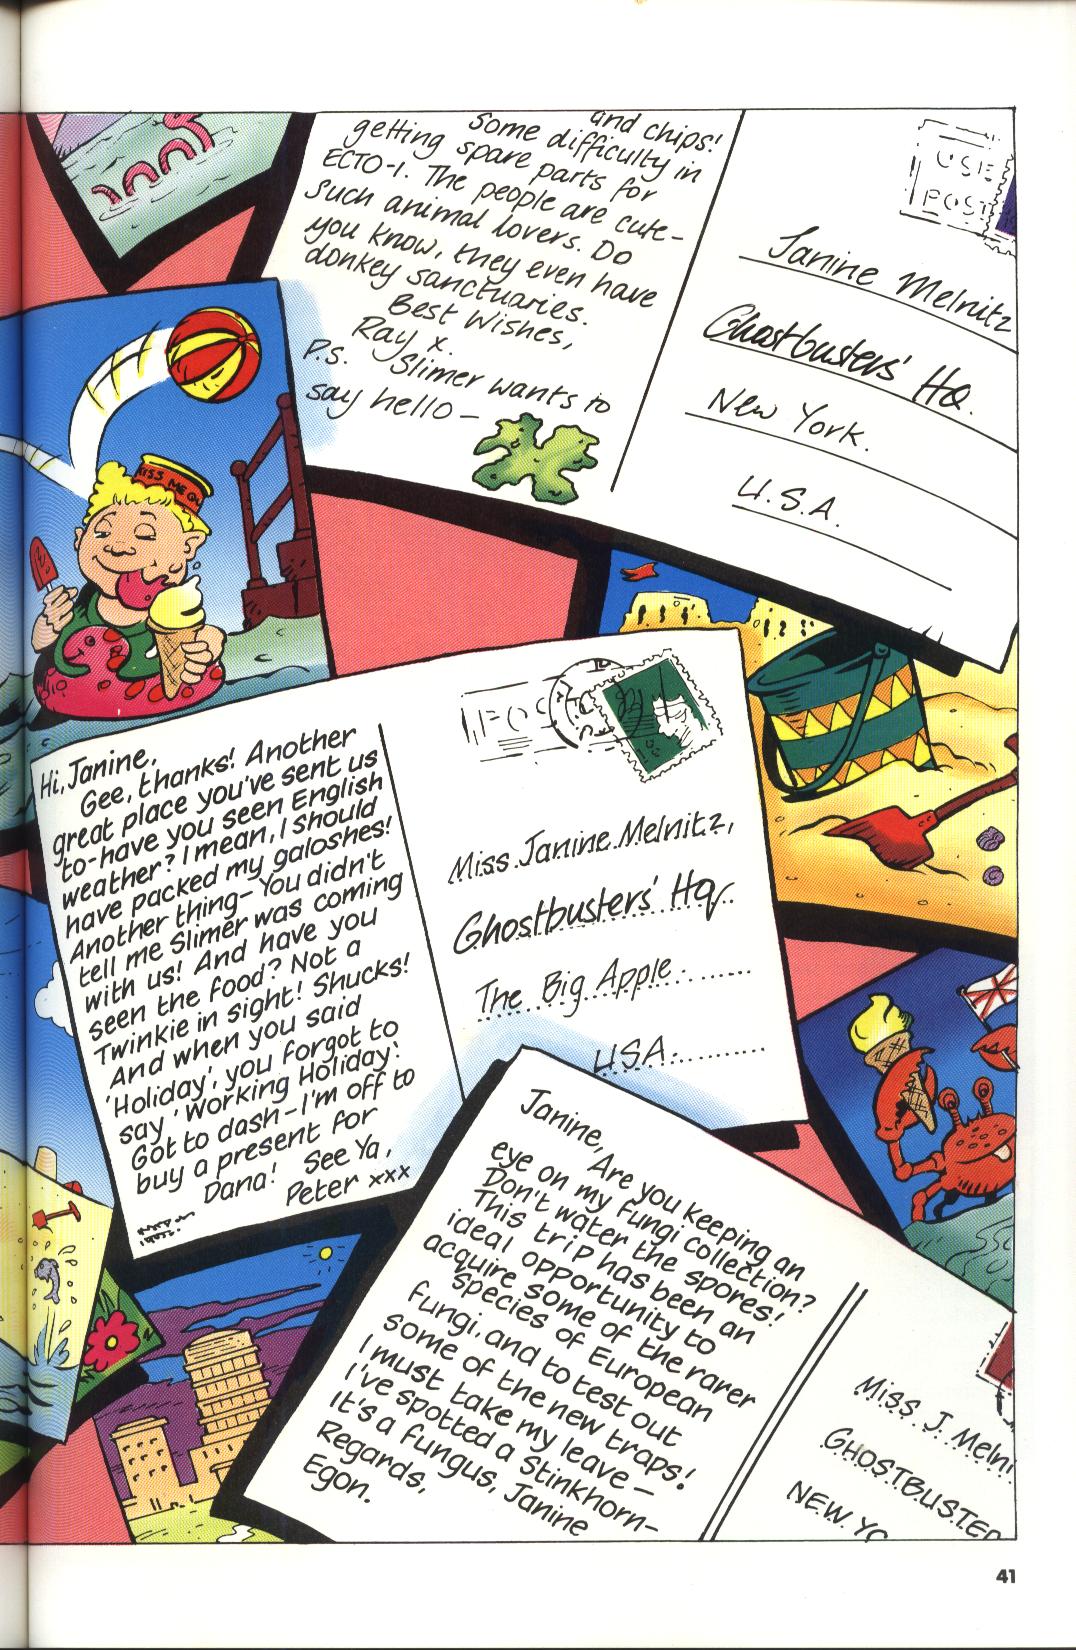 and chips!
some difficulty in
getting spare parts for
ECTO-1. The people are cute-
such animal lovers. Do
you know, they even have
donkey sanctuaries.
Best Wishes,
Ray x.
P.S. Slimer wants to
say hello—
USE
POST
Janine Melnitz
Ghostbusters' HQ.
New York.
U.S.A.
KISS ME
Hi, Janine,
Gee, thanks! Another
great place you've sent us
to-have you seen English
weather? I mean, I should
have packed my galoshes!
Another thing- You didn't
tell me Slimer was coming
with us! And have you
seen the food? Not a
Twinkie in sight! Shucks!
And when you said
'Holiday', you forgot to
say 'Working Holiday'.
Got to dash-I'm off to
buy a present for
Dana! See Ya,
Peter xxx
Miss Janine Melnitz,
Ghostbusters' HQ.
The Big Apple
USA.
Janine,
Are you keeping an
eye on my fungi collection?
Don't water the spores!
This trip has been an
ideal opportunity to
acquire some of the rarer
species of European
fungi, and to test out
some of the new traps!
I must take my leave—
I've spotted a Stinkhorn—
It's a fungus, Janine
Regards,
Egon.
Miss J. Melni
GHOSTBUSTER
NEW YO
41